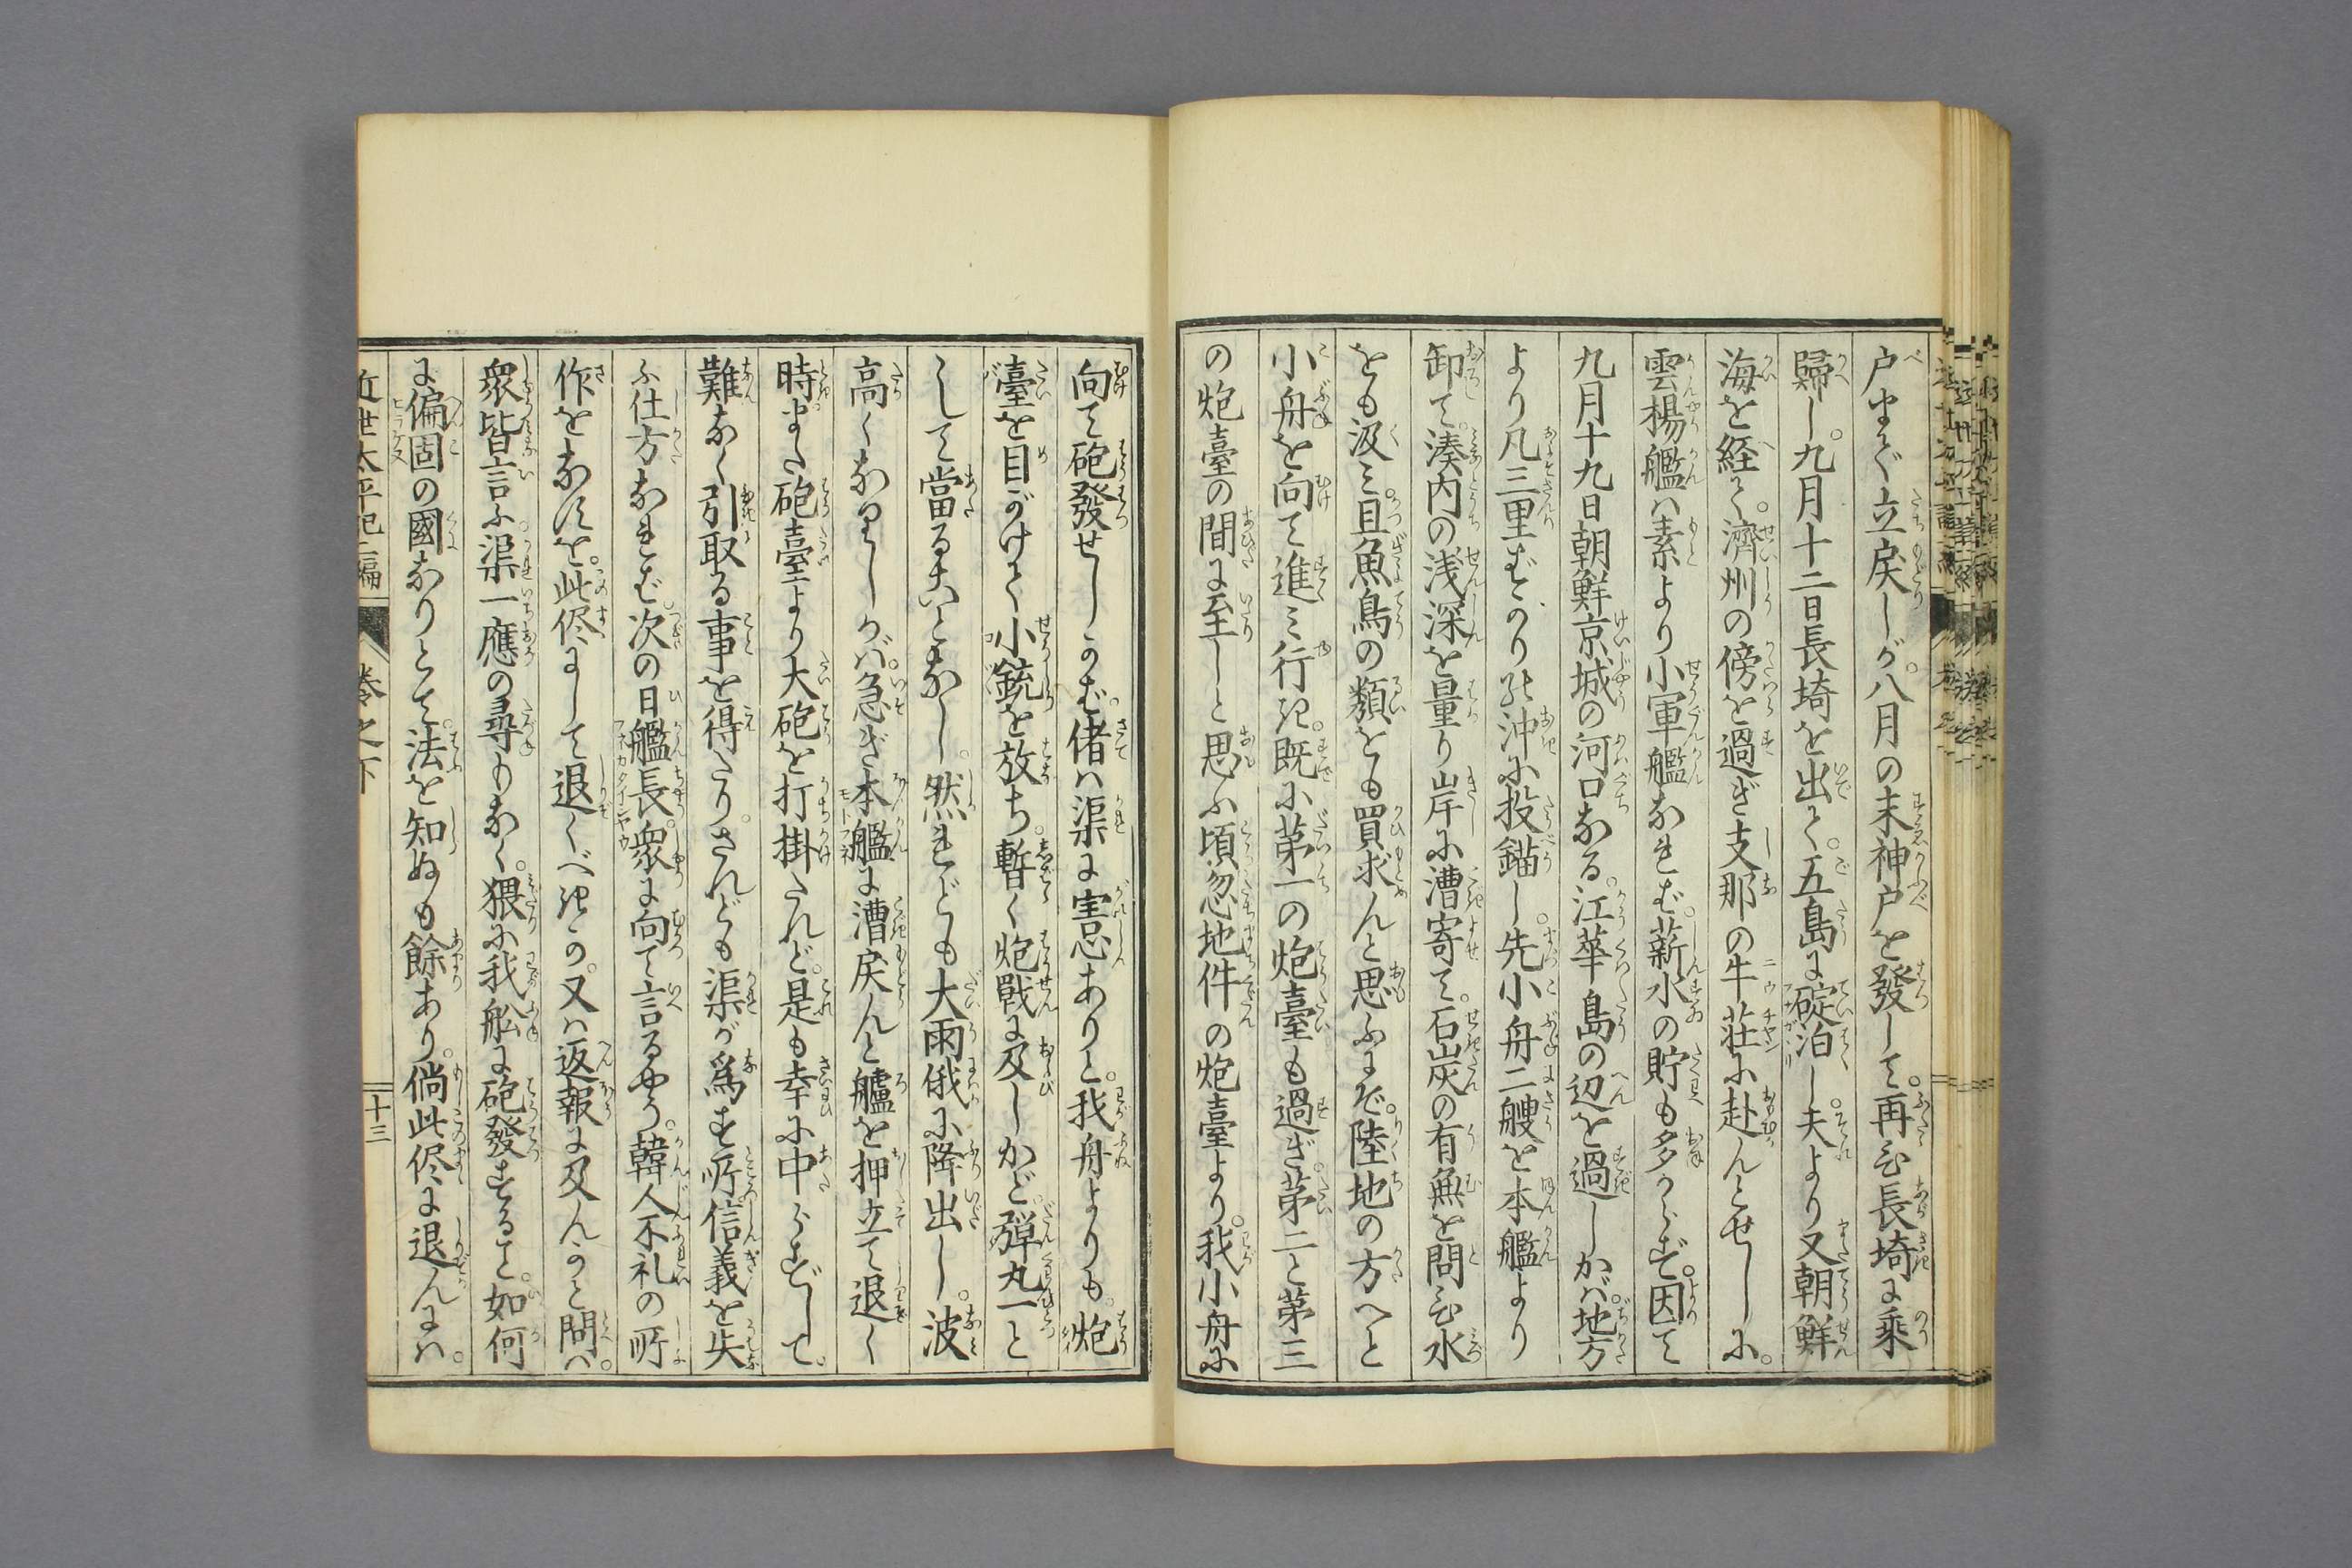 戸まで立戻しが。八月の末神戸を發して。再び長埼に乘
歸し。九月十二日長埼を出て。五島に碇泊し。夫より又朝鮮
海を経て。濟州の傍を過ぎ支那の牛荘に赴んとせしに。
雲揚艦は素より小軍艦なれば。薪水の貯も多からず。因て
九月十九日朝鮮京城の河口なる。江華島の辺を過しかば。地方
より凡三里ばかり沖に投錨し。先小舟二艘を本艦より
卸て。湊内の浅深を量り岸に漕寄て。石炭の有無を問ひ水
をも汲み。且魚鳥の類をも買求んと思ふにぞ。陸地の方へと
小舟を向て進み行き。既に第一の炮臺も過ぎ。第二と第三
の炮臺の間に至しと思ふ頃。忽地件の炮臺より。我小舟に
向て砲發せしかば。偖は渠に害心ありと。我舟よりも。炮
臺を目がけて小銃を放ち。暫く炮戰に及しかど。弾丸一と
して當るさへとなし。然れども大雨俄に降出し。波
高くなりしかば。急ぎ本艦に漕戻んと艫を押立て退く
時また砲臺より大砲を打掛たれど。是も幸に中らずして。
難なく引取る事を得たり。されども渠が爲す所信義を失
ふ仕方なれば。次の日艦長衆に向て言るやう。韓人不礼の所
作をなすを。此侭にして退くべきか。又は返報に及んかと問ば。
衆皆言ふ。渠一應の尋もなく。猥に我舩に砲發すること。如何
に偏固の國なりとて。法を知ぬも餘あり。倘此侭に退んには。
近世太平記二編
卷之下
十三